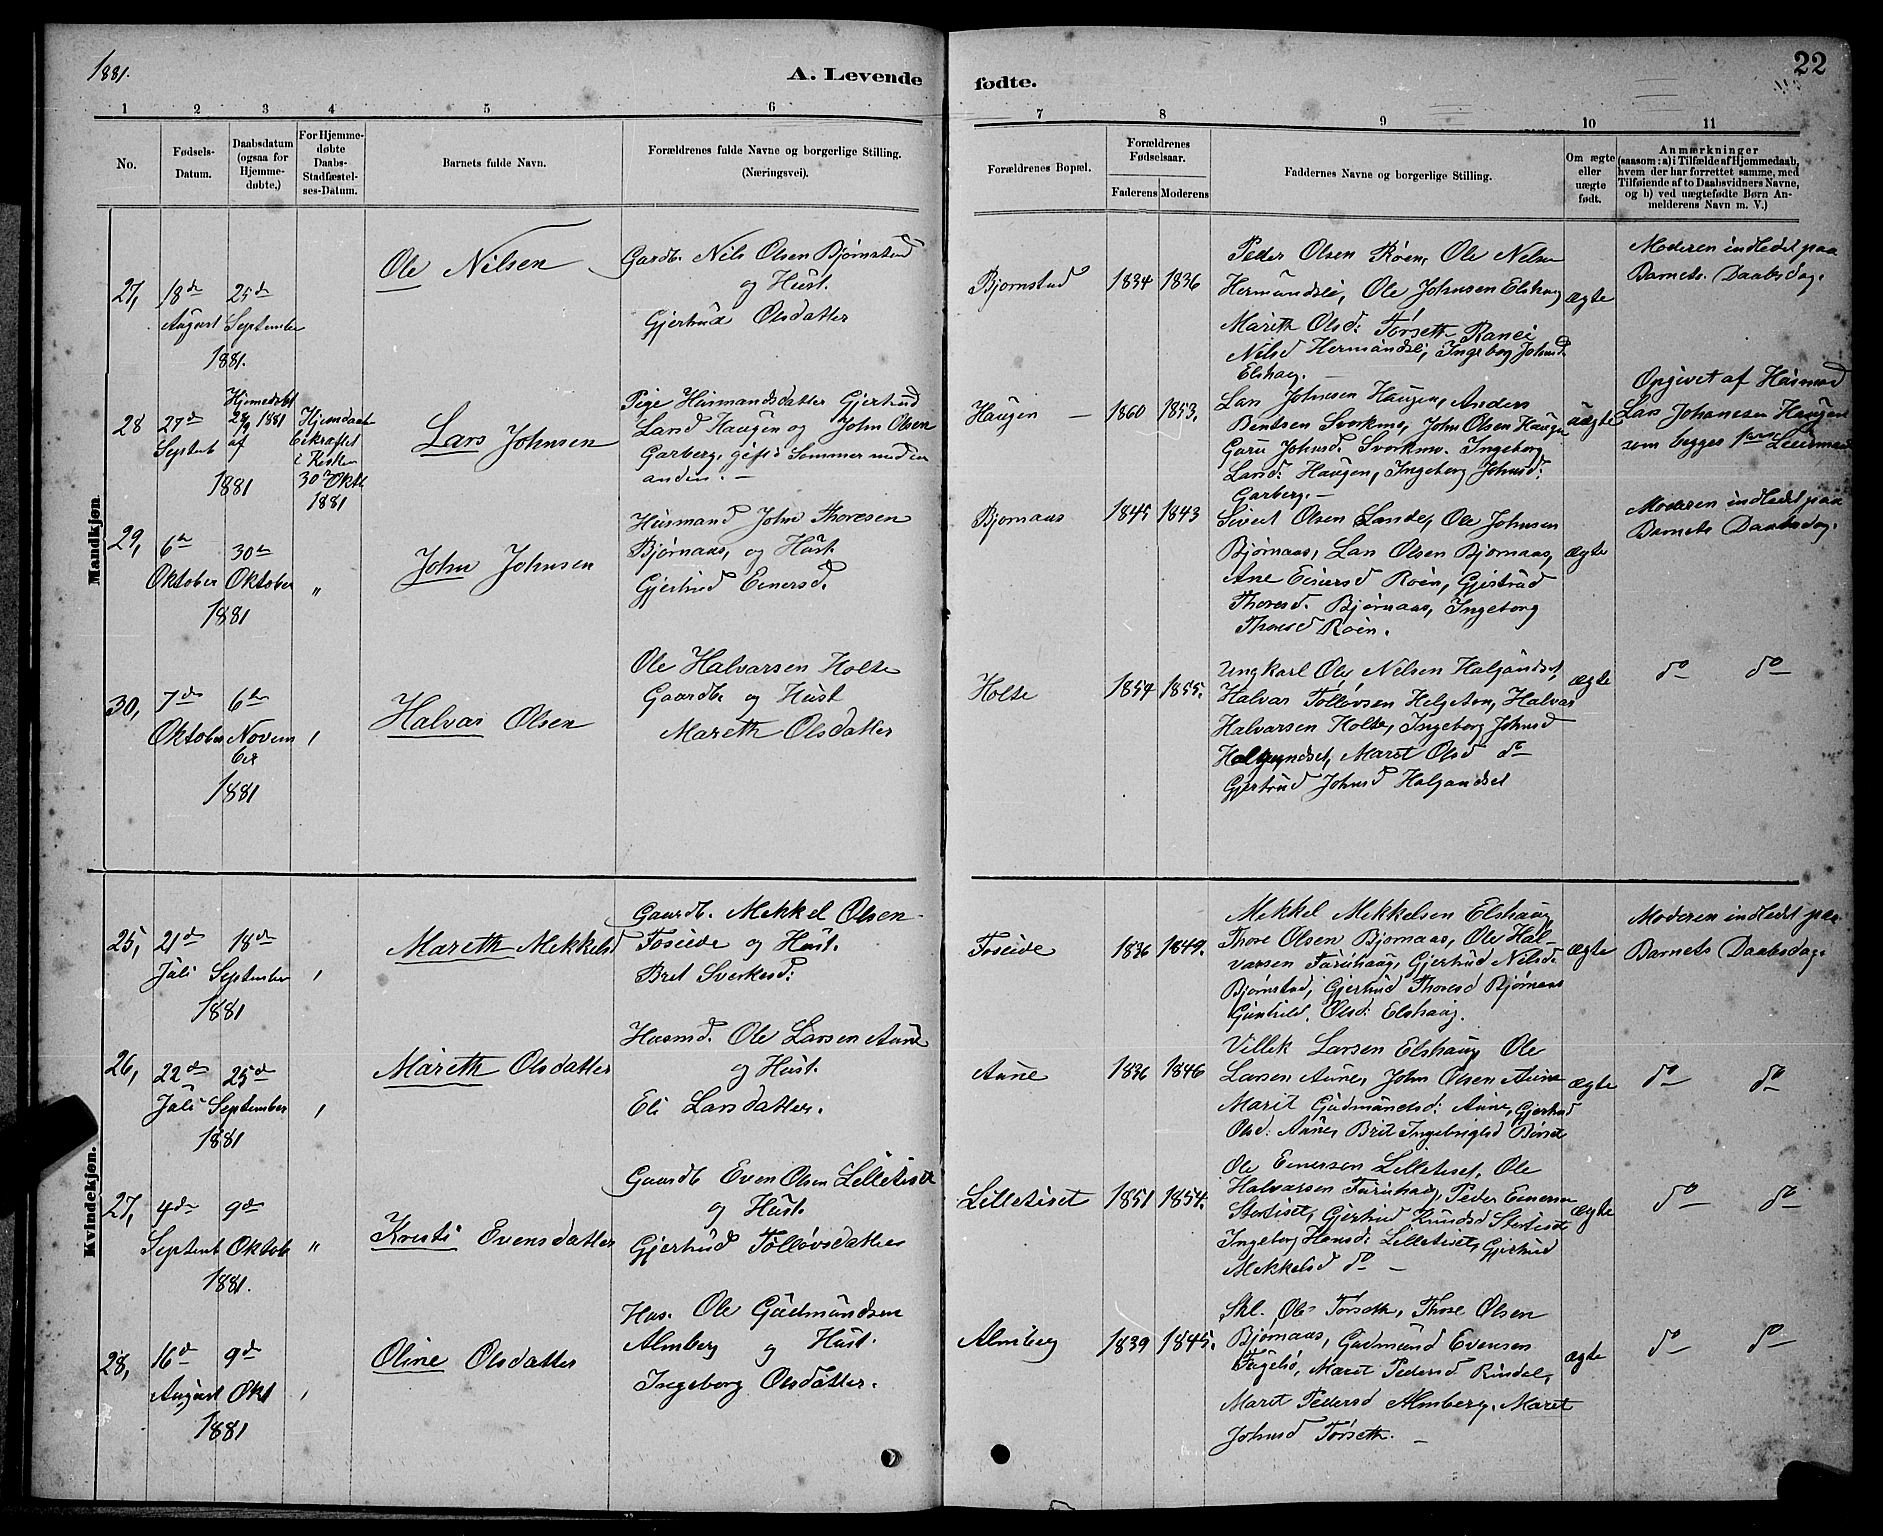 1881.
A. Levende fødte.
22
1 2 3 4 5 6 7 8 9 10 11
No.
Fødsels-Datum.
Daabsdatum (ogsaa for Hjemme-døbte.)
For Hjemme-døbte Daabs-Stadfæstel-ses-Datum.
Barnets fulde Navn.
Forældrenes fulde Navne og borgerlige Stilling.
(Næringsvei).
Forældrenes Bopæl.
Forældrenes Fødselsaar.
Faderens Moderens
Faddernes Navne og borgerlige Stilling.
Om ægte eller uægte født.
Anmærkninger
(saasom: a) i Tilfælde af Hjemmedaab, hvem der har forrettet samme, med Tilføiende af to Daabsvidners Navne, og b) ved uægtefødte Børn Anmelderens Navn m. V.)
Mandkjøn.
27,
18de August
25de September
1881.
Ole Nilsen
Gardb. Nils Olsen Bjørnstad
og Hust.
Gjertrud Olsdatter
Bjørnstad
1834 1836
Peder Olsen Roen, Ole Nelsen
Hermundsli, Ole Johnsen Elshaug
Marith Olsd: Torseth Ranei
Nilsd Hermundsli, Ingebog Johnsd
Elshaug. —
ægte
Moderen indledet paa
Barnets Daabsdag.
28
27de Septemt
1881
Hjemmedøbt
28/9 1881
af
Hjemdaab
bekræftet
i Kirken
30te Okt
1881
Lars Johnsen
Pige Husmandsdatter Gjertrud
Larsd Haugen og John Olsen
Garberg, gift i Sommer med en
anden. —
Haugen —
1860 1853.
Lars Johnsen Haugen, Anders
Bentsen Svorkmo, John Olsen Haugen
Guru Johnsd. Svorkmo. Ingeborg
Larsd: Haugen, Ingeborg Johnsd:
Garberg. —
uægte
Opgivet af Husmand
Lars Johansen Haugen
som begges 1ste Leiermaal
29,
6te Oktober
30te Oktober
1881
"
John Johnsen
Husmand John Thoresen
Bjørnaas, og Hust.
Gjertrud Einersd.
Bjornaas
1845 1843
Sivert Olsen Lande, Ole Johnsen
Bjørnaas, Lars Olsen Bjornaas,
Ane Einersd Roen, Gjertrud
Thoresd. Bjørnaas, Ingeborg
Thoresd Roen.
ægte
Moderen indledet paa
Barnets Daabsdag.
30,
7de Oktober
6te November
1881
Halvar Olsen
Ole Halvarsen Holte
Gaardb. og Hust
Mareth Olsdatter
Holte
1854 1855.
Ungkarl Ole Nilsen Halgundset,
Halvar Tollovsen Helgeton, Halvar
Halvarsen Holte, Ingeborg Johnsd
Halgundset, Maret Olsd do
Gjertrud Johnsd Halgundset
ægte
do do
Kvindekjøn.
25,
21de Juli
18de September
1881
Mareth Mekkelsd
Gaardb. Mekkel Olsen
Foseide og Hust.
Bret Sverkesd:
Foseide
1836 1849.
Mekkel Mekkelsen Elshaug
Thore Olsen Bjornaas, Ole Hal-
varsen Furuhaug, Gjertrud Nilsd.
Bjørnstad, Gjertrud Thoresd Bjørnaas
Gunhild. Olsd: Elshaug.
ægte
Moderen indledet paa
Barnets Daabsdag.
26,
22de Juli
25de September
1881
Mareth Olsdatter
Husmd. Ole Larsen Aune
og Hust.
Eli Larsdatter.
Aune
1836 1846
Villek Larsen Elshaug Ole
Larsen Aune, John Olsen Aune
Marit Gudmundsd: Aune, Gjertrud
Olsd: Aune, Brit Ingebrigtsd Børset
ægte
do do
27,
4de Septemt
9de Oktob
1881.
"
Kristi Evensdatter
Gaardb Even Olsen Lilletiset
og Hust.
Gjertrud Tollovsdatter
Lilletiset
1851 1854.
Ole Einersen Lilletiset, Ole
Halvarsen Furuhaug, Peder Einersen
Stortiset, Gjertrud Knudsd Stortiset
Ingeborg Hansd: Lilletiset, Gjertrud
Mekkelsd do —
ægte
do do
28,
16de August
9de Okt
1881
Oline Olsdatter
Hus. Ole Gudmundsen
Almberg og Hust.
Ingeborg Olsdatter.
Almberg
1839 1845.
Skl. Ole Torseth, Thore Olsen
Bjørnaas, Gudmund Evensen
Fugelsø, Maret Pedersd Rindal,
Maret Pedersd Almberg, Maret
Johnsd Torseth. —
ægte
do do